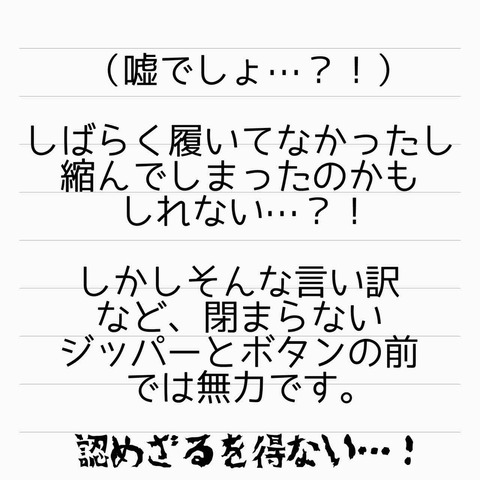 （嘘でしょ…？！）
しばらく履いてなかったし
縮んでしまったのかも
しれない…？！
しかしそんな言い訳
など、閉まらない
ジッパーとボタンの前
では無力です。
認めざるを得ない…！